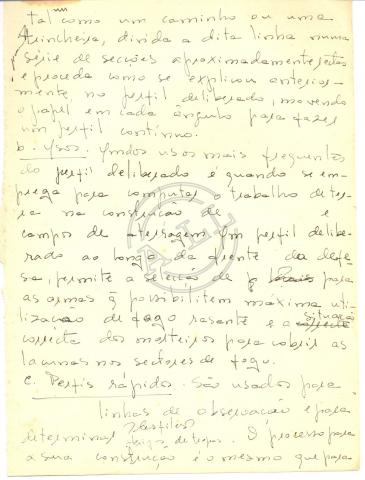 tal como um caminho ou uma
trincheira, divida a dita linha numa
série de secções aproximadamente rectas
e proceda como se explicou anterior-
mente, no perfil deliberado, movendo
o papel em cada ângulo para fazer
um perfil contínuo.
b. Usos. Um dos usos mais frequentes
do perfil deliberado é quando se em-
prega para computar o trabalho de ter-
ra na construção de e
campos de aterragem. Um perfil delibe-
rado ao longo da frente da defe-
sa, permite a selecção de para
as armas q possibilitem maxima uti-
lização de fogo rasante e a situação
correcta dos morteiros para cobrir as
lacunas nos sectores de fogo.
c. Perfis rápidos. São usados para
linhas de observação e para
determinar
O processo para
a sua construção é o mesmo que para